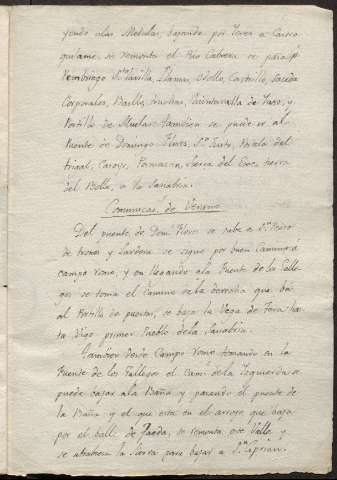 yendo alas Medulas, bajando por Yeres a Castro
quilame, se remonta el Rio Cabrera se pasa p.r
Nembiego S.ta Lavilla, Llamas, Odollo, Castrillo, Saceda
Corporales, Baillo, truchas, Quintanilla de Yuso, y
Portillo de Muelas: tambien se puede ir al
Puente de Domingo Florez, S.n Justo, Robledo del
trigal, Carage, Pumares, Sierra del Eje, tierra
del Bollo, a la Sanabria.
Comunicac.n de Verano
Del puente de Dom.o Florez se sube a S.n Pedro
de trones y Sardonedo se sigue por buen Camino a
campo Romo, y en llegando ala Fuente de los Galle
gos se toma el camino dela derecha que bá
al Portillo de puertas, se baja la Vega de Tera has
ta Vigo primer Pueblo dela Sanabria.
Tambien desde Campo Romo tomando en la
Fuente de los Gallegos el cam.o de la Izquierda se
puede bajar ala Baña y pasando el puente de
la Baña y el que esta en el arroyo que baja
por el balle de se remonta este Valle y
se atrabiesa la Sierra para bajar a S.n Ciprian.